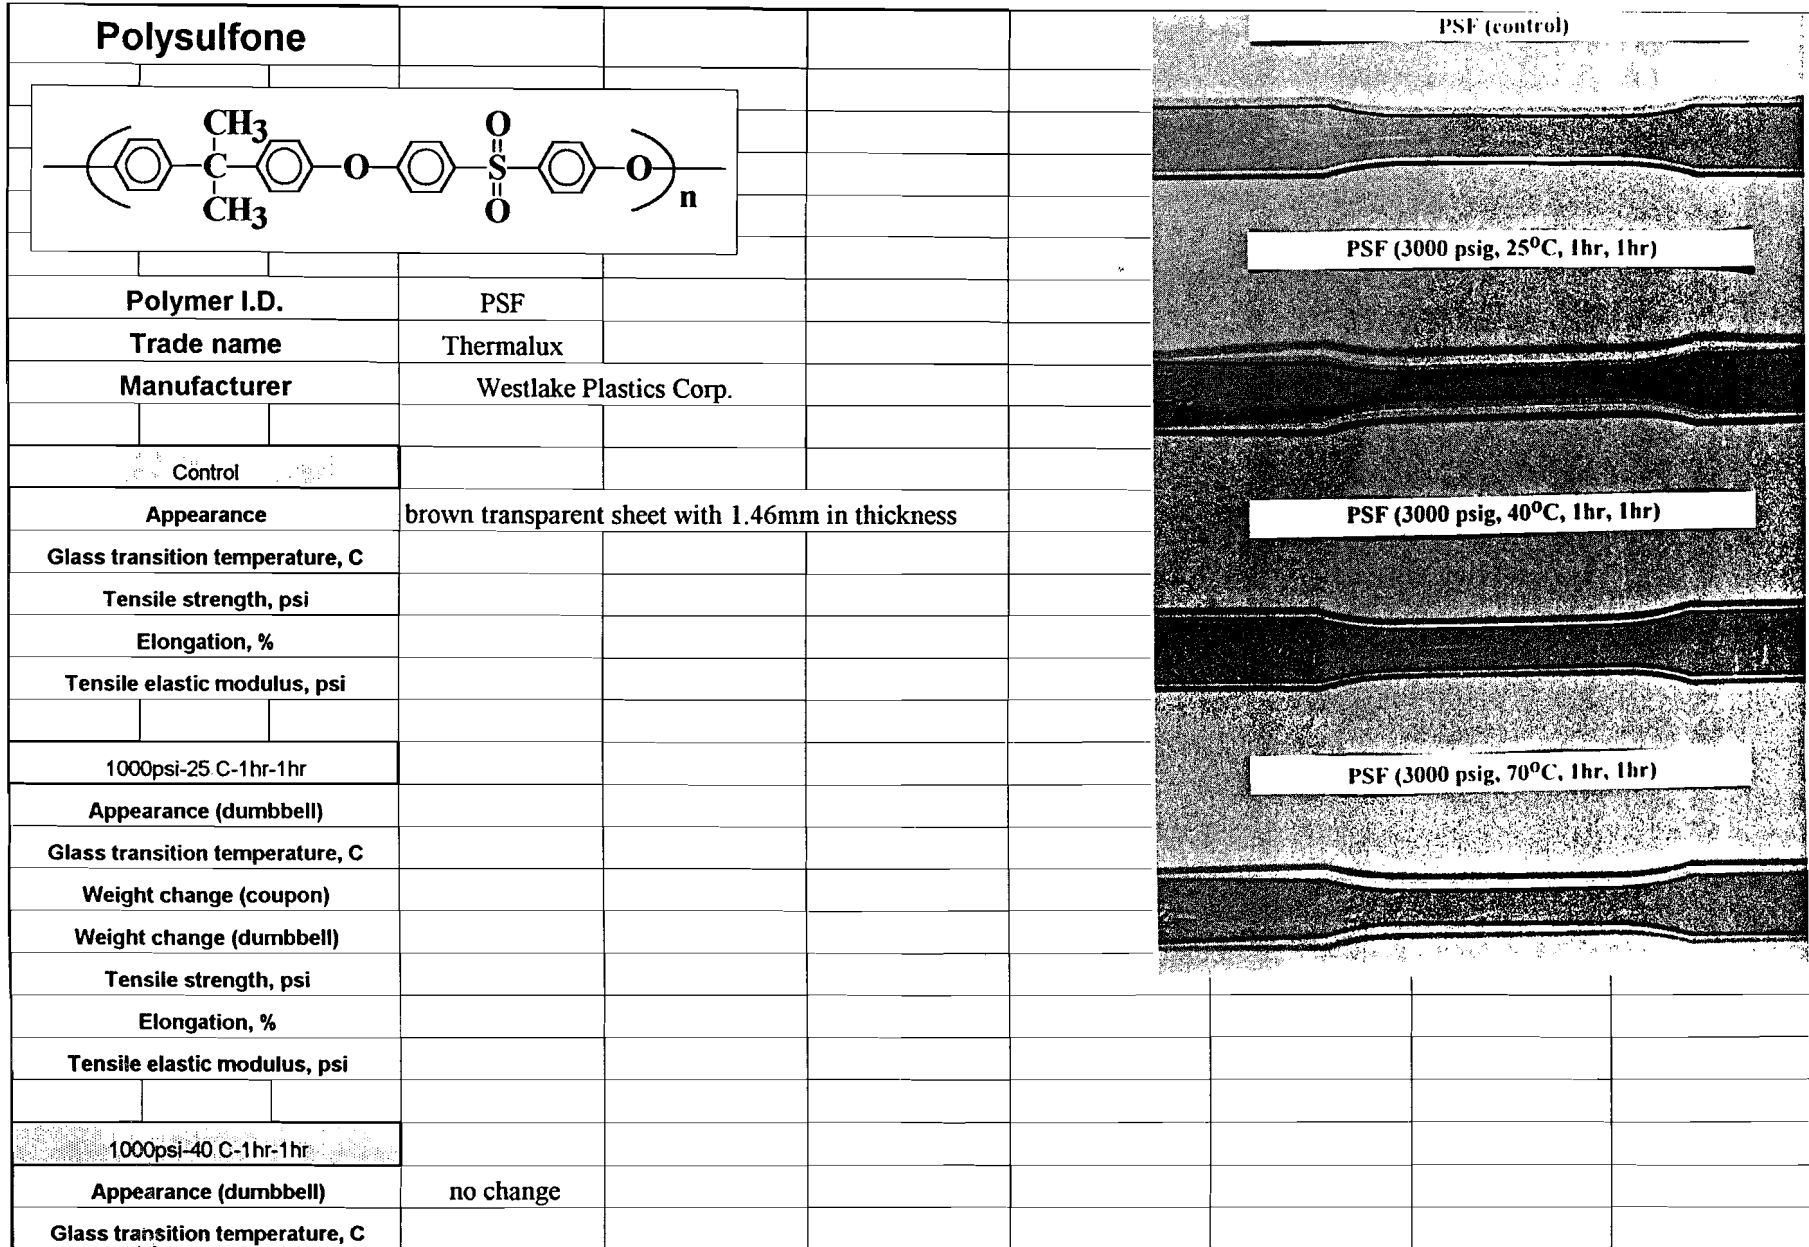 Polysulfone
CH3
O
C
O
S
O
n
CH3
O
Polymer I.D. PSF
Trade name Thermalux
Manufacturer Westlake Plastics Corp.
Control
Appearance brown transparent sheet with 1.46mm in thickness
Glass transition temperature, C
Tensile strength, psi
Elongation, %
Tensile elastic modulus, psi
1000psi-25 C-1hr-1hr
Appearance (dumbbell)
Glass transition temperature, C
Weight change (coupon)
Weight change (dumbbell)
Tensile strength, psi
Elongation, %
Tensile elastic modulus, psi
1000psi-40 C-1hr-1hr
Appearance (dumbbell) no change
Glass transition temperature, C
PSF (control)
PSF (3000 psig, 25⁰C, 1hr, 1hr)
PSF (3000 psig, 40⁰C, 1hr, 1hr)
PSF (3000 psig, 70⁰C, 1hr, 1hr)